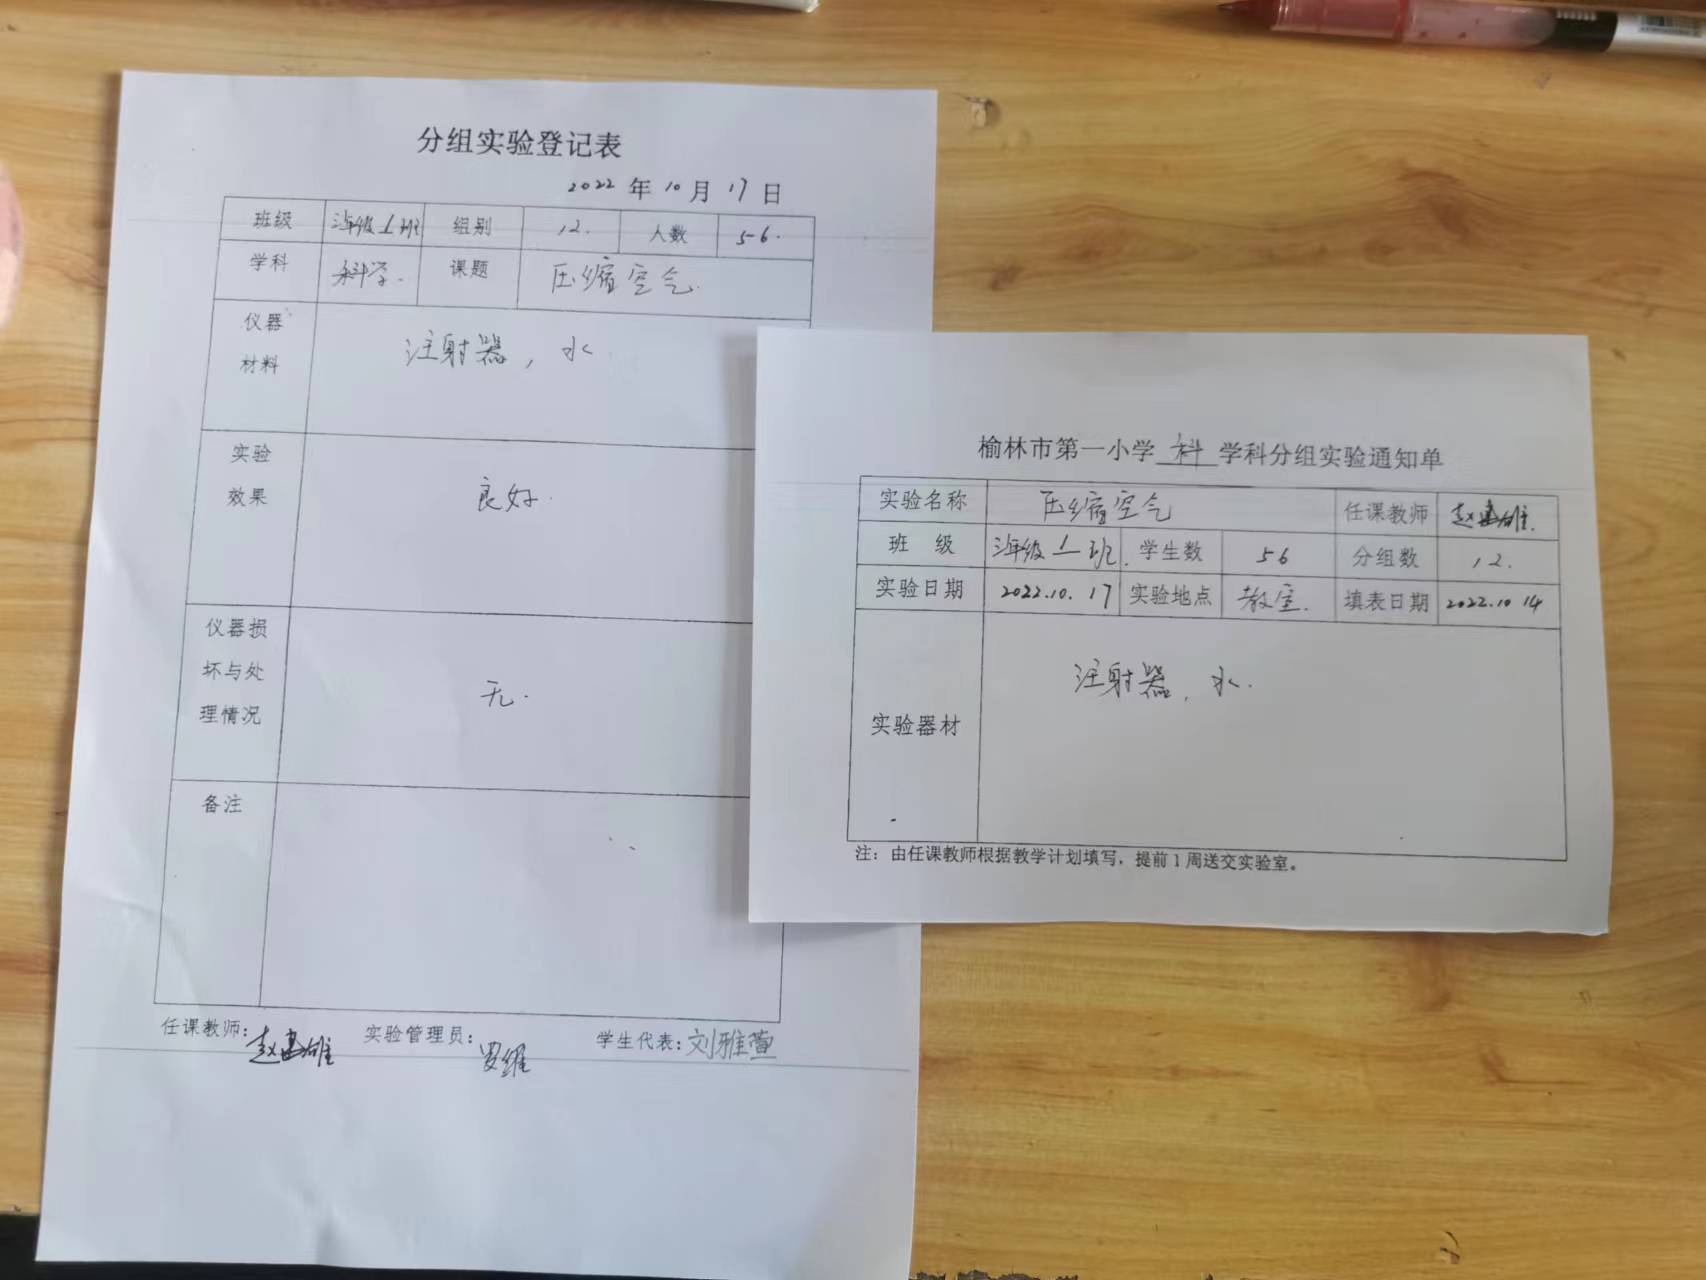 分组实验登记表
2022 年 10 月 17 日
班级 三年级 1 班 组别 12. 人数 56.
学科 科学. 课题 压缩空气.
仪器材料 注射器，水
实验效果 良好.
仪器损坏与处理情况 无.
备注
任课教师: 赵建雄 实验管理员: 罗维 学生代表: 刘雅萱
榆林市第一小学 科 学科分组实验通知单
实验名称 压缩空气 任课教师 赵建雄.
班 级 三年级 1 班. 学生数 56 分组数 12.
实验日期 2022.10.17 实验地点 教室. 填表日期 2022.10 14
实验器材 注射器，水.
注：由任课教师根据教学计划填写，提前 1 周送交实验室。